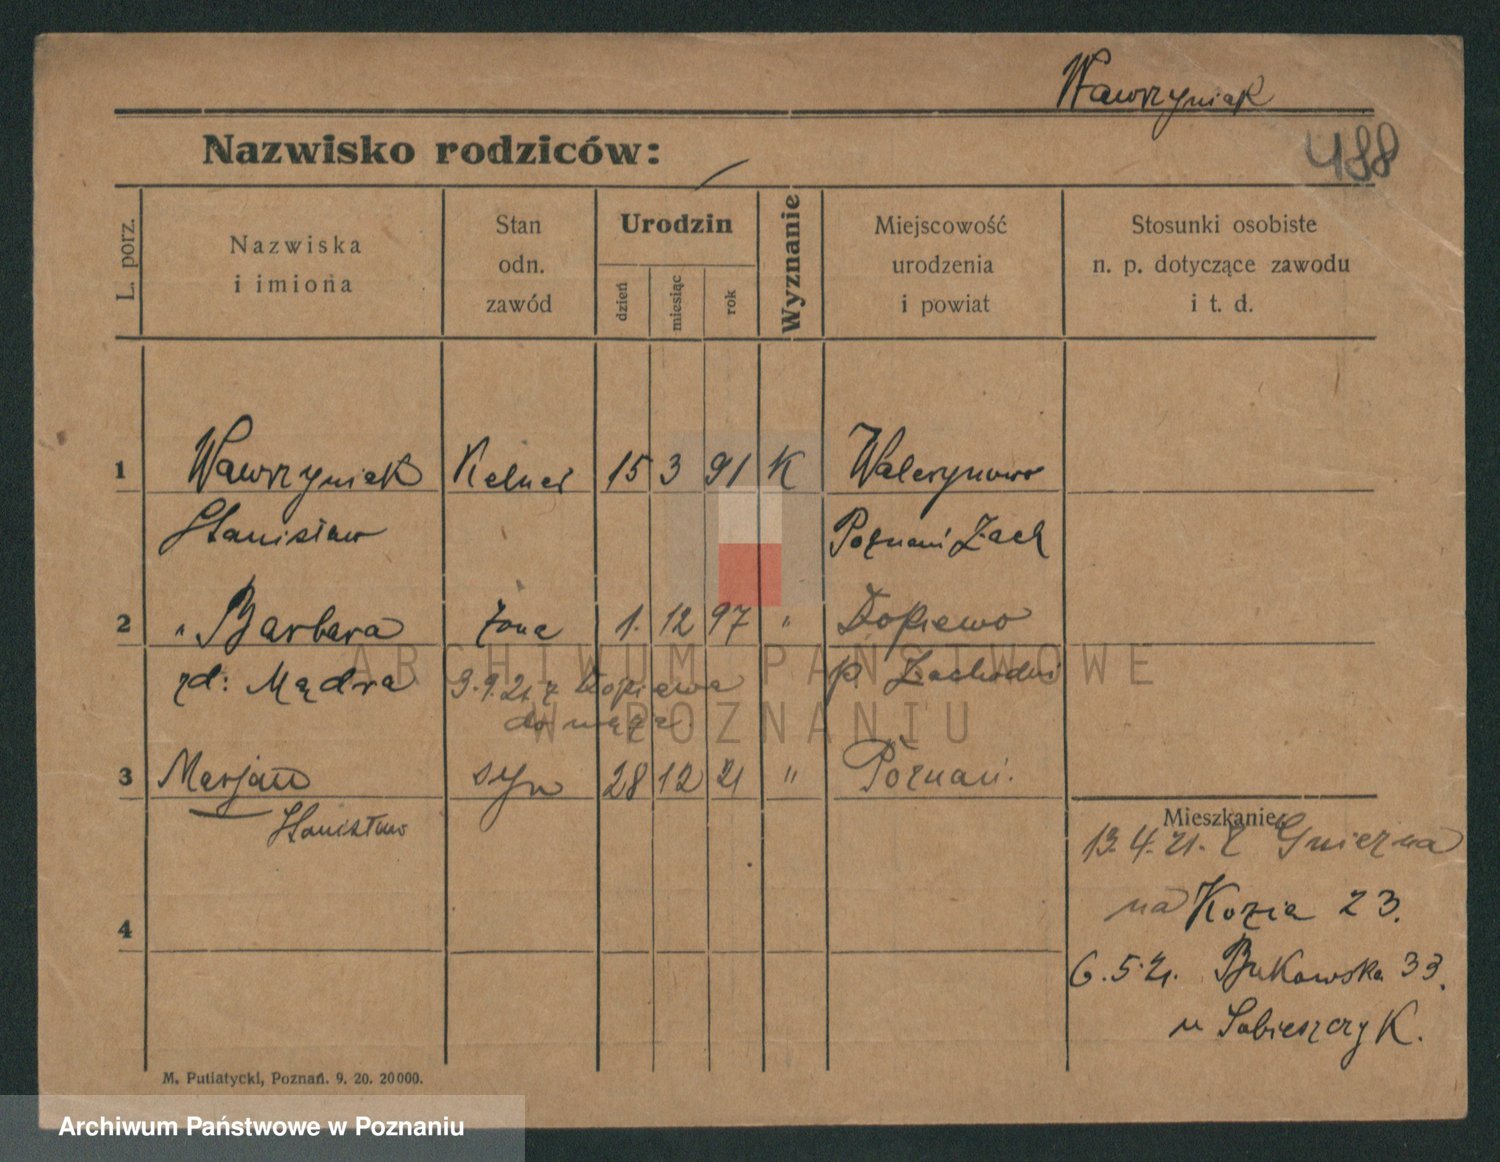 Wawrzyniak
488
Nazwisko rodziców:
L. porz.
Nazwiska
i imiona
Stan
odn.
zawód
Urodzin
dzień
miesiąc
rok
Wyznanie
Miejscowość
urodzenia
i powiat
Stosunki osobiste
n. p. dotyczące zawodu
i t. d.
1 Wawrzyniak Kelner 15 3 91 K Walerynowo
Stanisław Poznań Zach
2 " Barbara żona 1. 12 97 " Dopiewo
zd: Mądra 9.9.21 z Dopiewa p. Zachodni
do męża
3 Marjan syn 28 12 21 " Poznań.
Stanisław
Mieszkanie
13.4.21. z Gniezna
na Kozia 23.
4
6.5.21. Bukowska 33.
u Sobieszczyk.
M. Putiatycki, Poznań. 9. 20. 20000.
ARCHIWUM PAŃSTWOWE
W POZNANIU
Archiwum Państwowe w Poznaniu